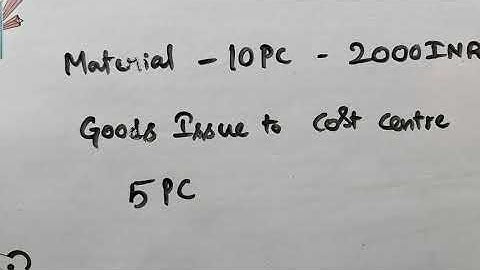 Material - 10 PC - 2000 INR
Goods Issue to Cost centre
5 PC